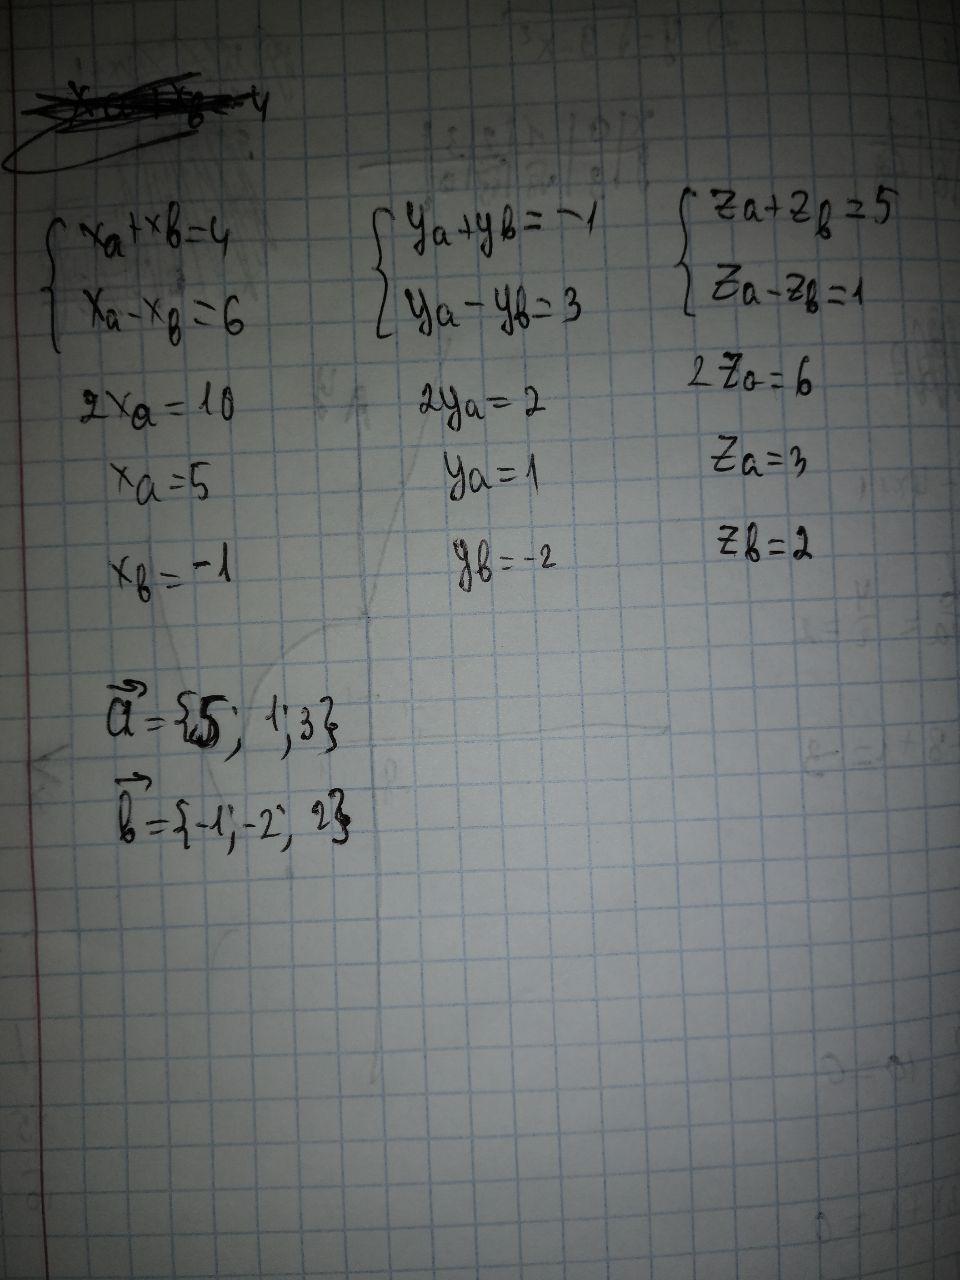 xa+xb=4
xa-xb=6
2xa=10
xa=5
xb=-1
ya+yb=-1
ya-yb=3
2ya=2
ya=1
yb=-2
za+zb=5
za-zb=1
2za=6
za=3
zb=2
a={5; 1;3}
b={-1;-2; 2}